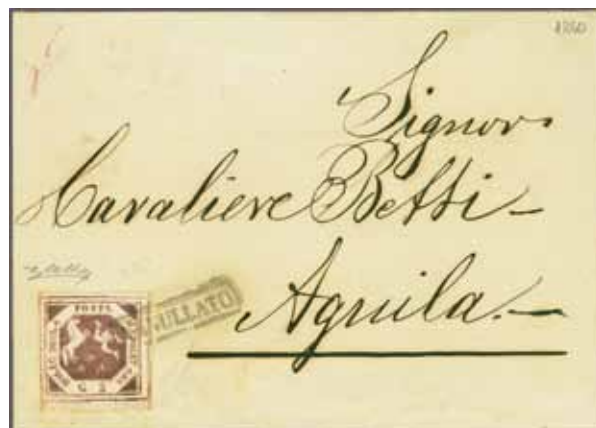 1860
Signor
Cavaliere Betti -
Aquila. -
ANNULLATO
POSTA
G 2